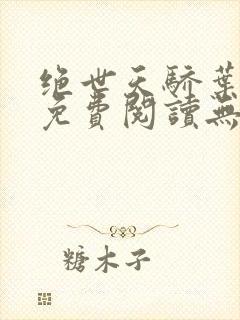 绝世天骄葉
免費閱讀無
糖木子